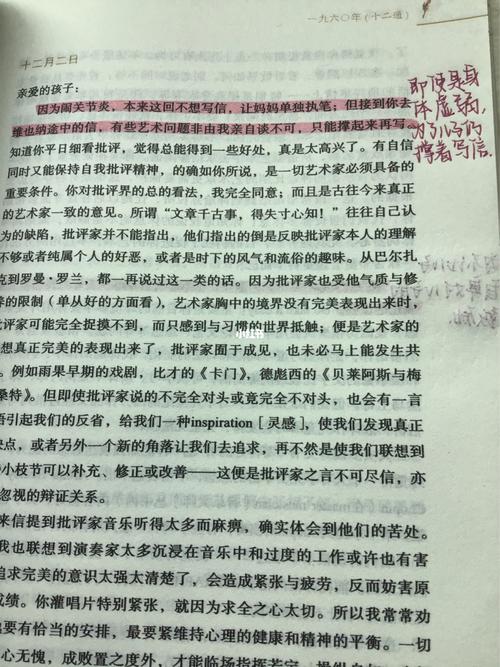 一九六〇年(十二通)
十二月二日
亲爱的孩子:
因为闹关节炎,本来这回不想写信,让妈妈单独执笔;但接到你去
维也纳途中的信,有些艺术问题非由我亲自谈不可,只能撑起来再写。
知道你平日细看批评,觉得总能得到一些好处,真是太高兴了。有自信
同时又能保持自我批评精神,的确如你所说,是一切艺术家必须具备的
重要条件。你对批评界的总的看法,我完全同意;而且是古往今来真正
的艺术家一致的意见。所谓“文章千古事,得失寸心知!”往往自己认
为的缺陷,批评家并不能指出,他们指出的倒是反映批评家本人的理解
不够或者纯属个人的好恶,或者是时下的风气和流俗的趣味。从巴尔扎
克到罗曼·罗兰,都一再说过这一类的话。因为批评家也受他气质与修
的限制(单从好的方面看),艺术家胸中的境界没有完美表现出来时,
评家可能完全捉摸不到,而只感到与习惯的世界抵触;便是艺术家的
想真正完美的表现出来了,批评家囿于成见,也未必马上能发生共
。例如雨果早期的戏剧,比才的《卡门》,德彪西的《贝莱阿斯与梅
桑特》。但即使批评家说的不完全对头或竟完全不对头,也会有一言
语引起我们的反省,给我们一种inspiration[灵感],使我们发现真正
缺点,或者另外一个新的角落让我们去追求,再不然是使我们联想到
小枝节可以补充、修正或改善——这便是批评家之言不可尽信,亦
忽视的辩证关系。
来信提到批评家音乐听得太多而麻痹,确实体会到他们的苦处。
我也联想到演奏家太多沉浸在音乐中和过度的工作或许也有害
追求完美的意识太强太清楚了,会造成紧张与疲劳,反而妨害原
成绩。你灌唱片特别紧张,就因为求全之心太切。所以我常常劝
要有恰当的安排,最要紧维持心理的健康和精神的平衡。一切
心无愧,成败置之度外,才能临场指挥若定
即便是身
体虚弱,
撑着写信.
小红书